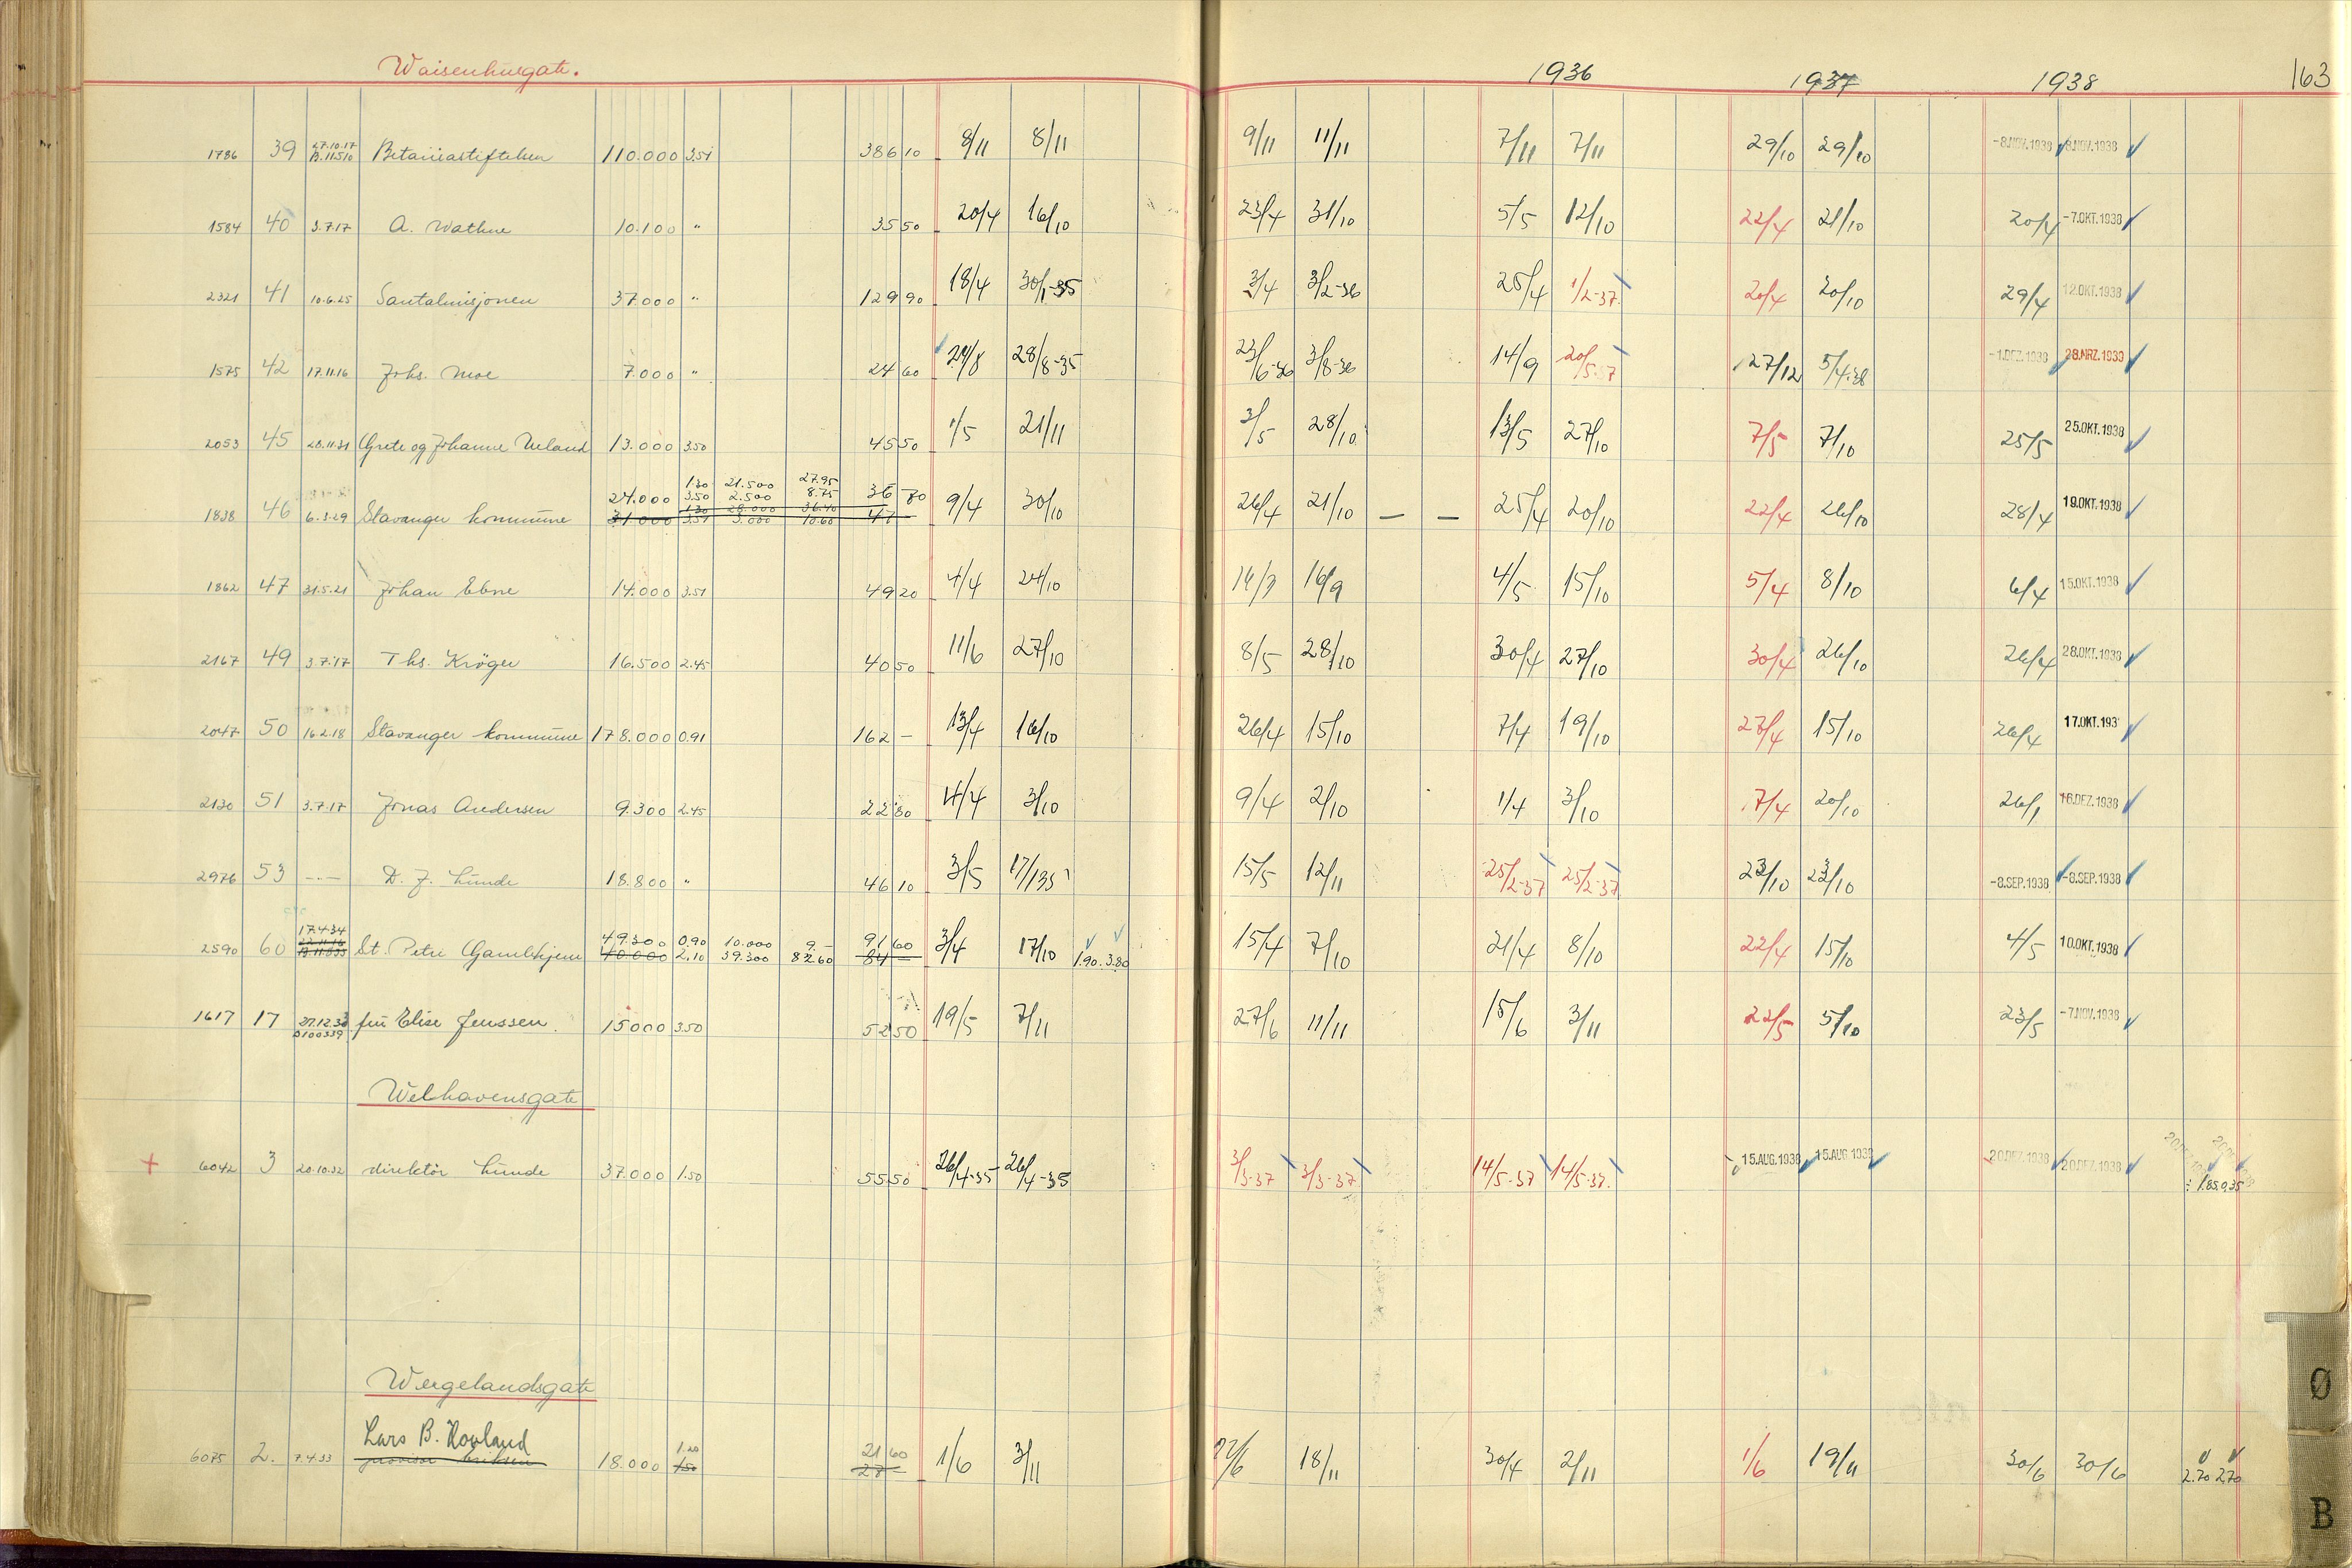 Waisenhusgate. 1936 1937 1938 163
1786 39 27.10.17 B.11510 Betaniastiftelsen 110.000 3.51 386 10 8/11 8/11 9/11 11/11 7/11 7/11 29/10 29/10 -8.NOV.1938 8.NOV.1938
1584 40 3.7.17 A. Wathne 10.100 " 35 50 20/4 16/10 23/4 31/10 5/5 12/10 22/4 21/10 20/4 -7.OKT.1938
2321 41 10.6.25 Santalmisjonen 37.000 " 129 90 18/4 30/1-35 3/4 3/2-36 25/4 1/2-37. 20/4 20/10 29/4 12.OKT.1938
1575 42 17.11.16 Johs. Moe 7.000 " 24 60 28/8-35 23/6-36 3/8-36 14/9 20/5-37 27/12 5/4-38 -1.DEZ.1938 28.MRZ.1939
2053 45 28.11.31 Grete og Johanne Ueland 13.000 3.50 45 50 1/5 21/11 3/5 28/10 13/5 27/10 7/5 7/10 25/5 25.OKT.1938
24.000 1.30 21.500 27.95 3.50 2.500 8.75 36 70
1838 46 6.3.29 Stavanger kommune 31.000 1.30 28.000 36.40 3.51 3.000 10.60 47 - 9/4 30/10 26/4 21/10 - - 25/4 20/10 22/4 26/10 28/4 19.OKT.1938
1862 47 31.5.21 Johan Ebne 14.000 3.51 49 20 4/4 24/10 16/9 4/5 15/10 5/4 8/10 6/4 15.OKT.1938
2167 49 3.7.17 Ths. Kröger 16.500 2.45 40 50 11/6 27/10 8/5 28/10 30/4 27/10 30/4 26/10 26/4 28.OKT.1938
2047 50 16.2.18 Stavanger kommune 178.000 0.91 162 - 13/4 16/10 26/4 15/10 7/4 19/10 27/4 15/10 26/4 17.OKT.193
2130 51 3.7.17 Jonas Andersen 9.300 2.45 22 80 4/4 3/10 9/4 2/10 1/4 3/10 7/4 20/10 26/1 16.DEZ.1938
2976 53 -.- D. J. Lunde 18.800 " 46 10 3/5 17/1 35 15/5 12/11 25/2-37 25/2-37 23/10 23/10 -8.SEP.1938 -8.SEP.1938
17.4.34 49.300 0.90 10.000 9.- 91 60
2590 60 St. Petri Gamlehjem 40.000 2.10 39.300 82.60 84 - 3/4 17/10 1.90 3.80 15/4 7/10 21/4 8/10 22/4 15/10 4/5 10.OKT.1938
1617 17 27.12.33 D100339 fru Elise Jenssen. 15000 3.50 52 50 19/5 7/11 27/6 11/11 15/6 3/11 22/5 5/10 23/5 -7.NOV.1938
Welhavensgate
+ 6042 3 20.10.32 direktör Lunde 37.000 1.50 55 50 26/4-35 26/4-35 3/3-37 3/3-37 14/5-37 14/5-37. 15.AUG.1938 15.AUG.1938 20.DEZ.1938 20.DEZ.1938 1.85 0.35
Wergelandsgate
Lars B. Hovland 1.20 21 60
6075 2. 7.4.33 provisor Eriksen 18.000 1.50 27 - 1/6 3/11 22/6 18/11 30/4 2/11 1/6 19/11 30/6 30/6 2.70 2.70
Ø
B